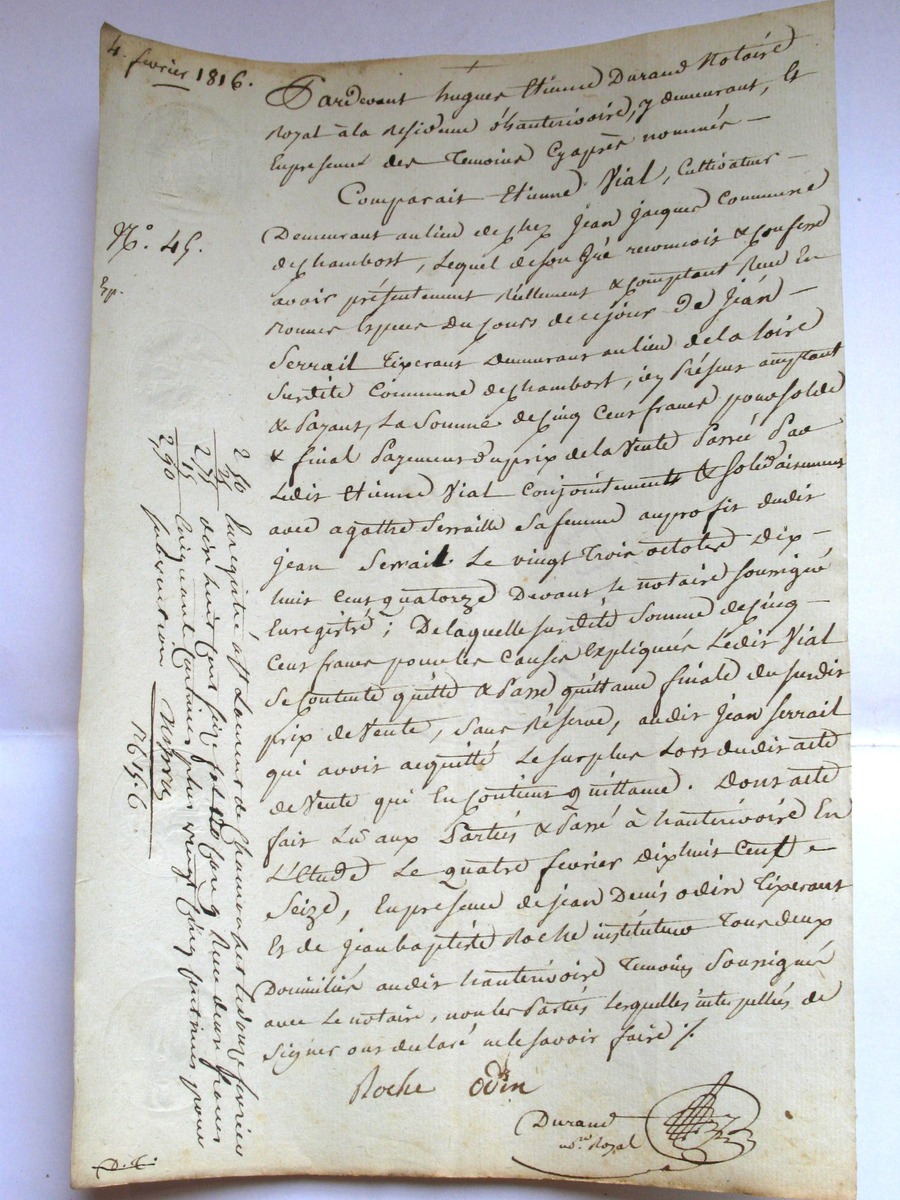 4 fevrier 1816.
Pardevant hugues Etienne Durand Notaire
Royal à la Residence d'hauterivoire, y demeurant, Et
En presence des Temoins Cyaprès nommés —
Comparait Etienne Vial, Cultivateur —
Demeurant au lieu de chez Jean Jacques Commune
de Chambost, Lequel de son Gré reconnoit & confesse
avoir présentement Réellement & comptant Reçu En
Nº. 45.
Ep.
bonnes Especes du cours de ce jour De Jean —
Serrail Tixerant Demeurant au lieu de la loire
Surdite Commune de Chambost, icy Présent acceptant
& Payant, La Somme de Cinq Cent francs pour solde
& final Payement du prix de la Vente Passée Par
Ledit Etienne Vial Conjointement & solidairement
avec agathe Serraille sa femme au profit dudit
jean Serrail Le vingt Trois octobre Dix —
huit Cent quatorze Devant le notaire soussigné
Enregistré; De laquelle susdite Somme de Cinq —
Cent francs pour les Causes Expliquées Ledit Vial
Se Contente quitte & Passe quittance finale du susdit
prix de Vente, Sans Réserve, audit Jean Serrail
qui avoit acquitté Le surplus Lors dudit acte
de Vente qui En Contient quittance. Dont acte
fait Lu aux Parties & Passé à hauterivoire En
L'Etude Le quatre fevrier dix huit Cent
Seize, En presence de jean Denis odin Tixerant
Et de Jean baptiste Roche instituteur Tous deux
Domiciliés audit hauterivoire Temoins Soussignés
avec Le notaire, non les Parties Lesquelles interpellées de
Signer ont declaré ne le savoir faire /.
Roche Odin
Durand
no.re Royal
Enregistré à St Laurent de Chamousset Le douze fevrier
dix huit Cent seize Reçu deux francs
cinquante Centimes plus vingt Cinq centimes pour
subvention
2 50
25
2,75
15
2,90